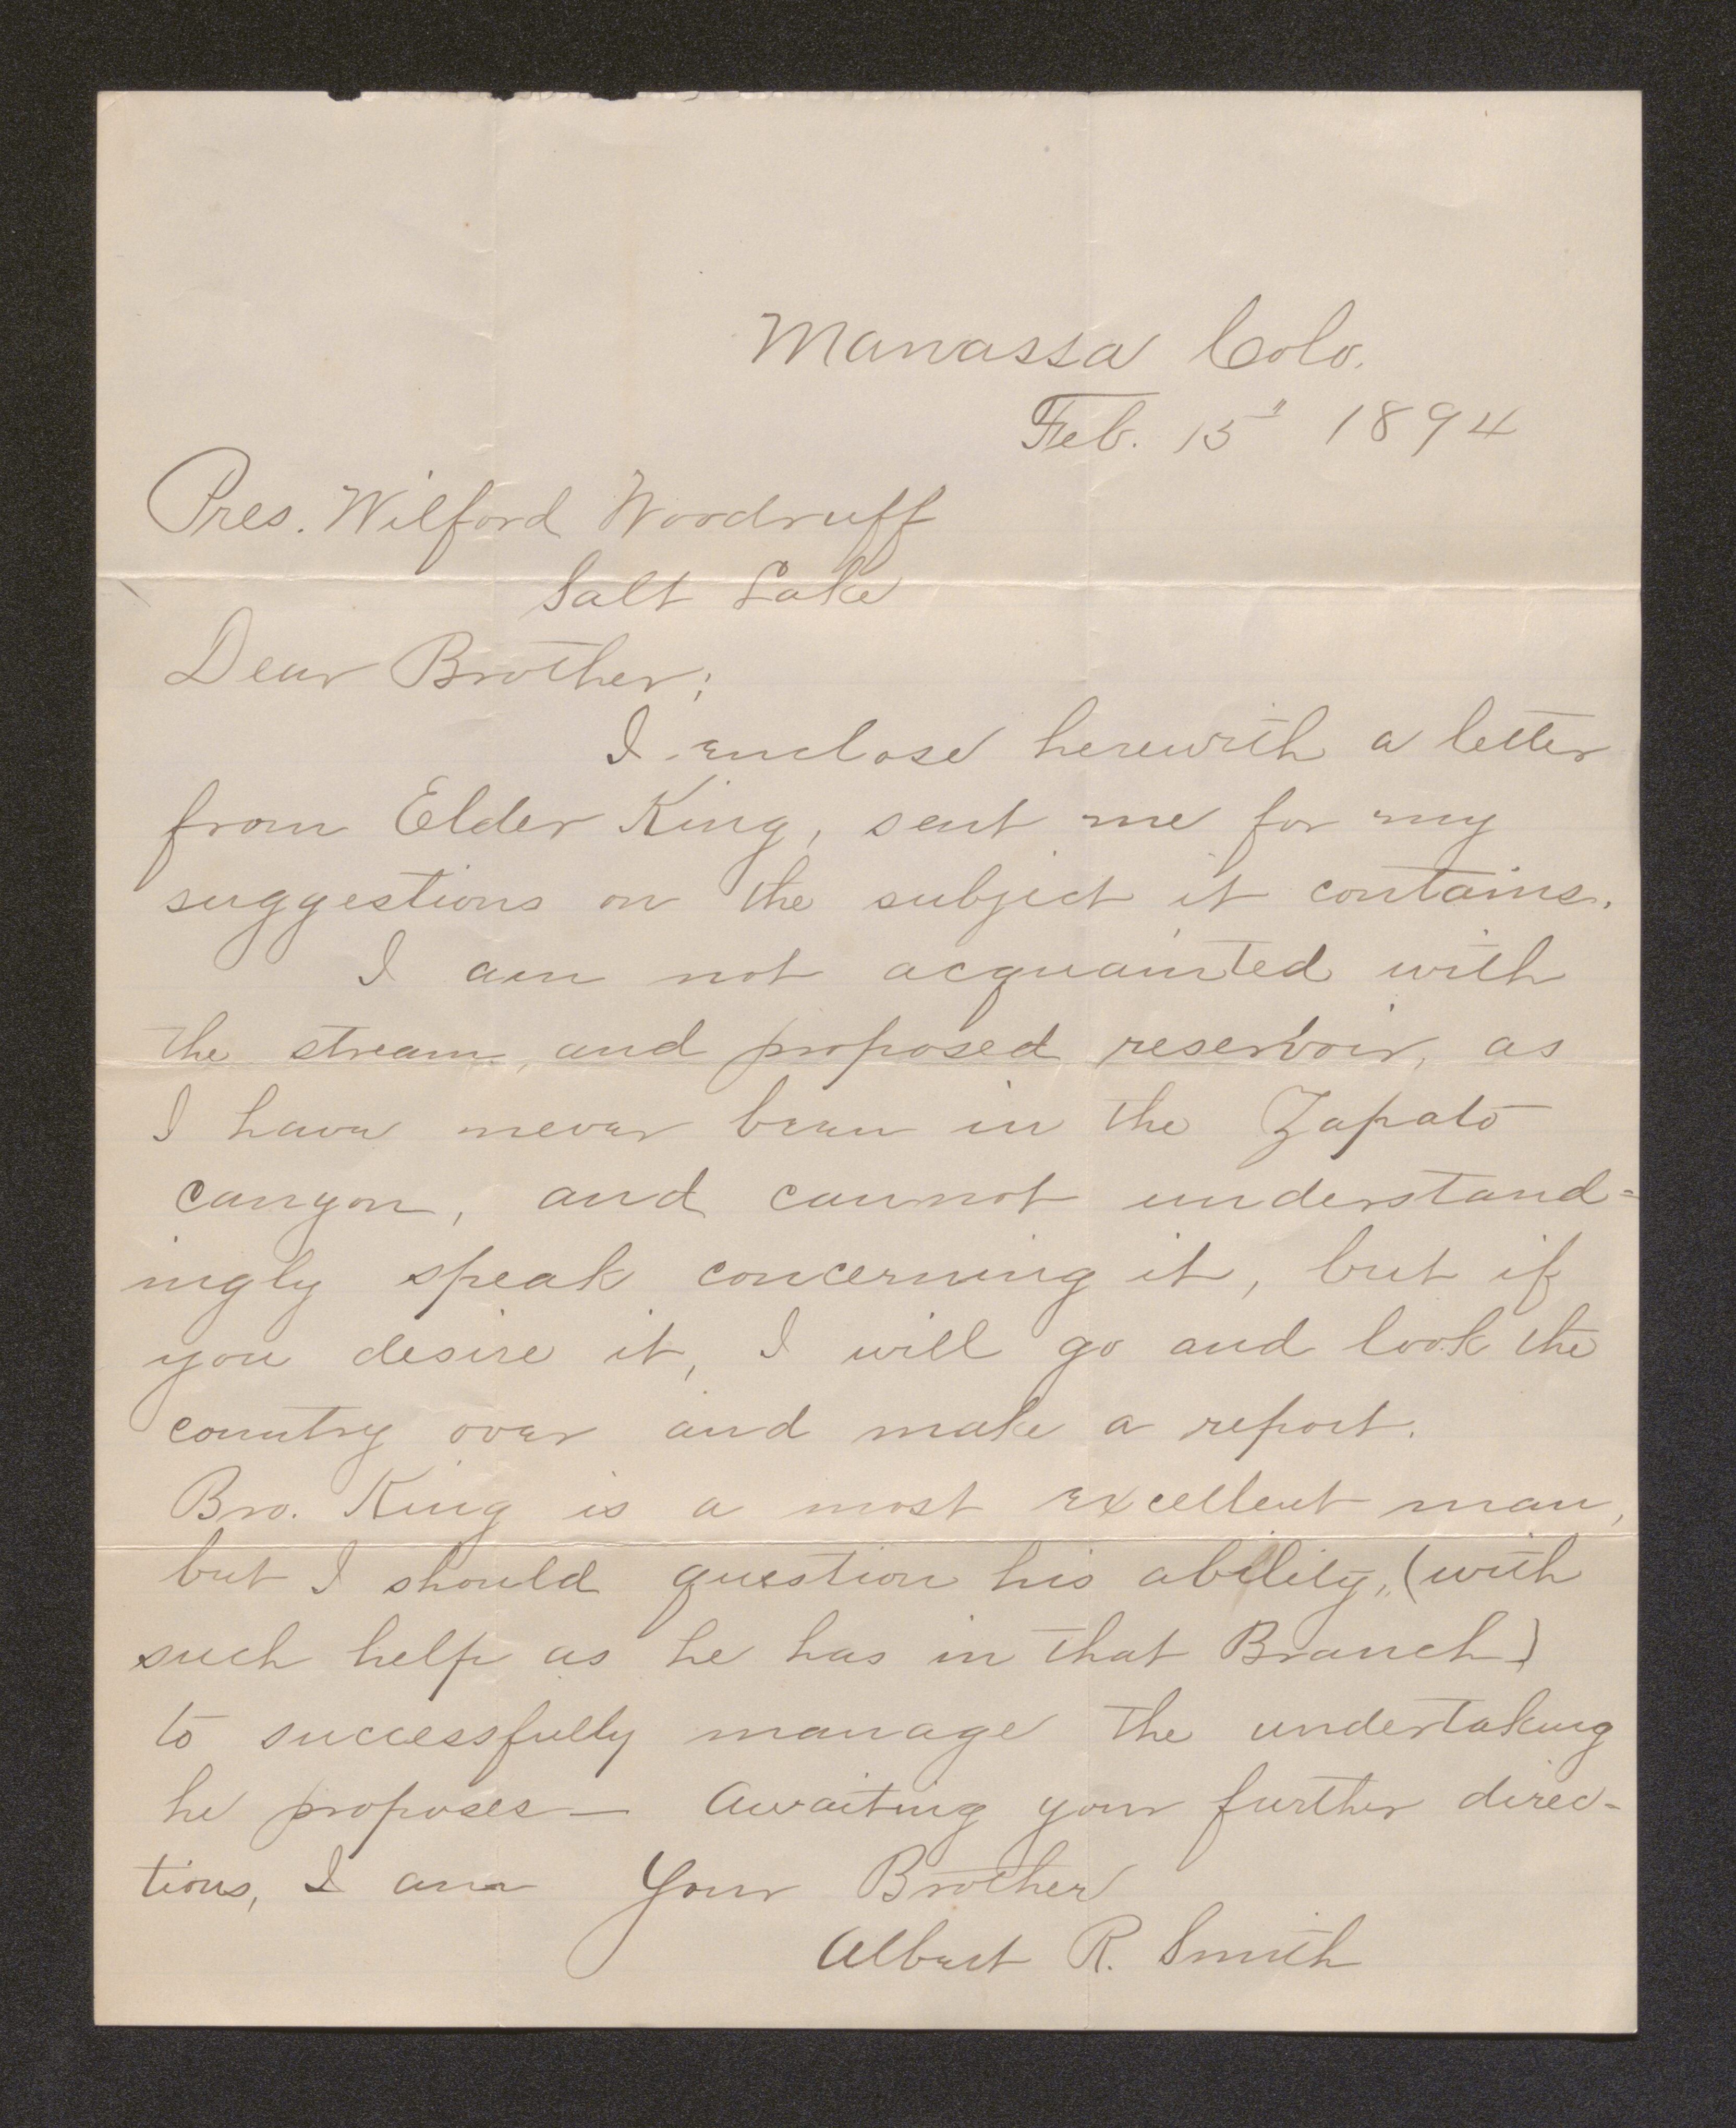 Manassa Colo.
Feb. 15" 1894
Pres. Wilford Woodruff
Salt Lake
Dear Brother;
I enclose herewith a letter
from Elder King, sent me for my
suggestions on the subject it contains.
I am not acquainted with
the stream, and proposed reservoir, as
I have never been in the Zapato
canyon, and cannot understand=
ingly speak concerning it, but if
you desire it, I will go and look the
country over and make a report.
Bro. King is a most excellent man,
but I should question his ability, (with
such help as he has in that Branch)
to successfully manage the undertaking
he proposes— Awaiting your further direc-
tions, I am Your Brother
Albert R. Smith